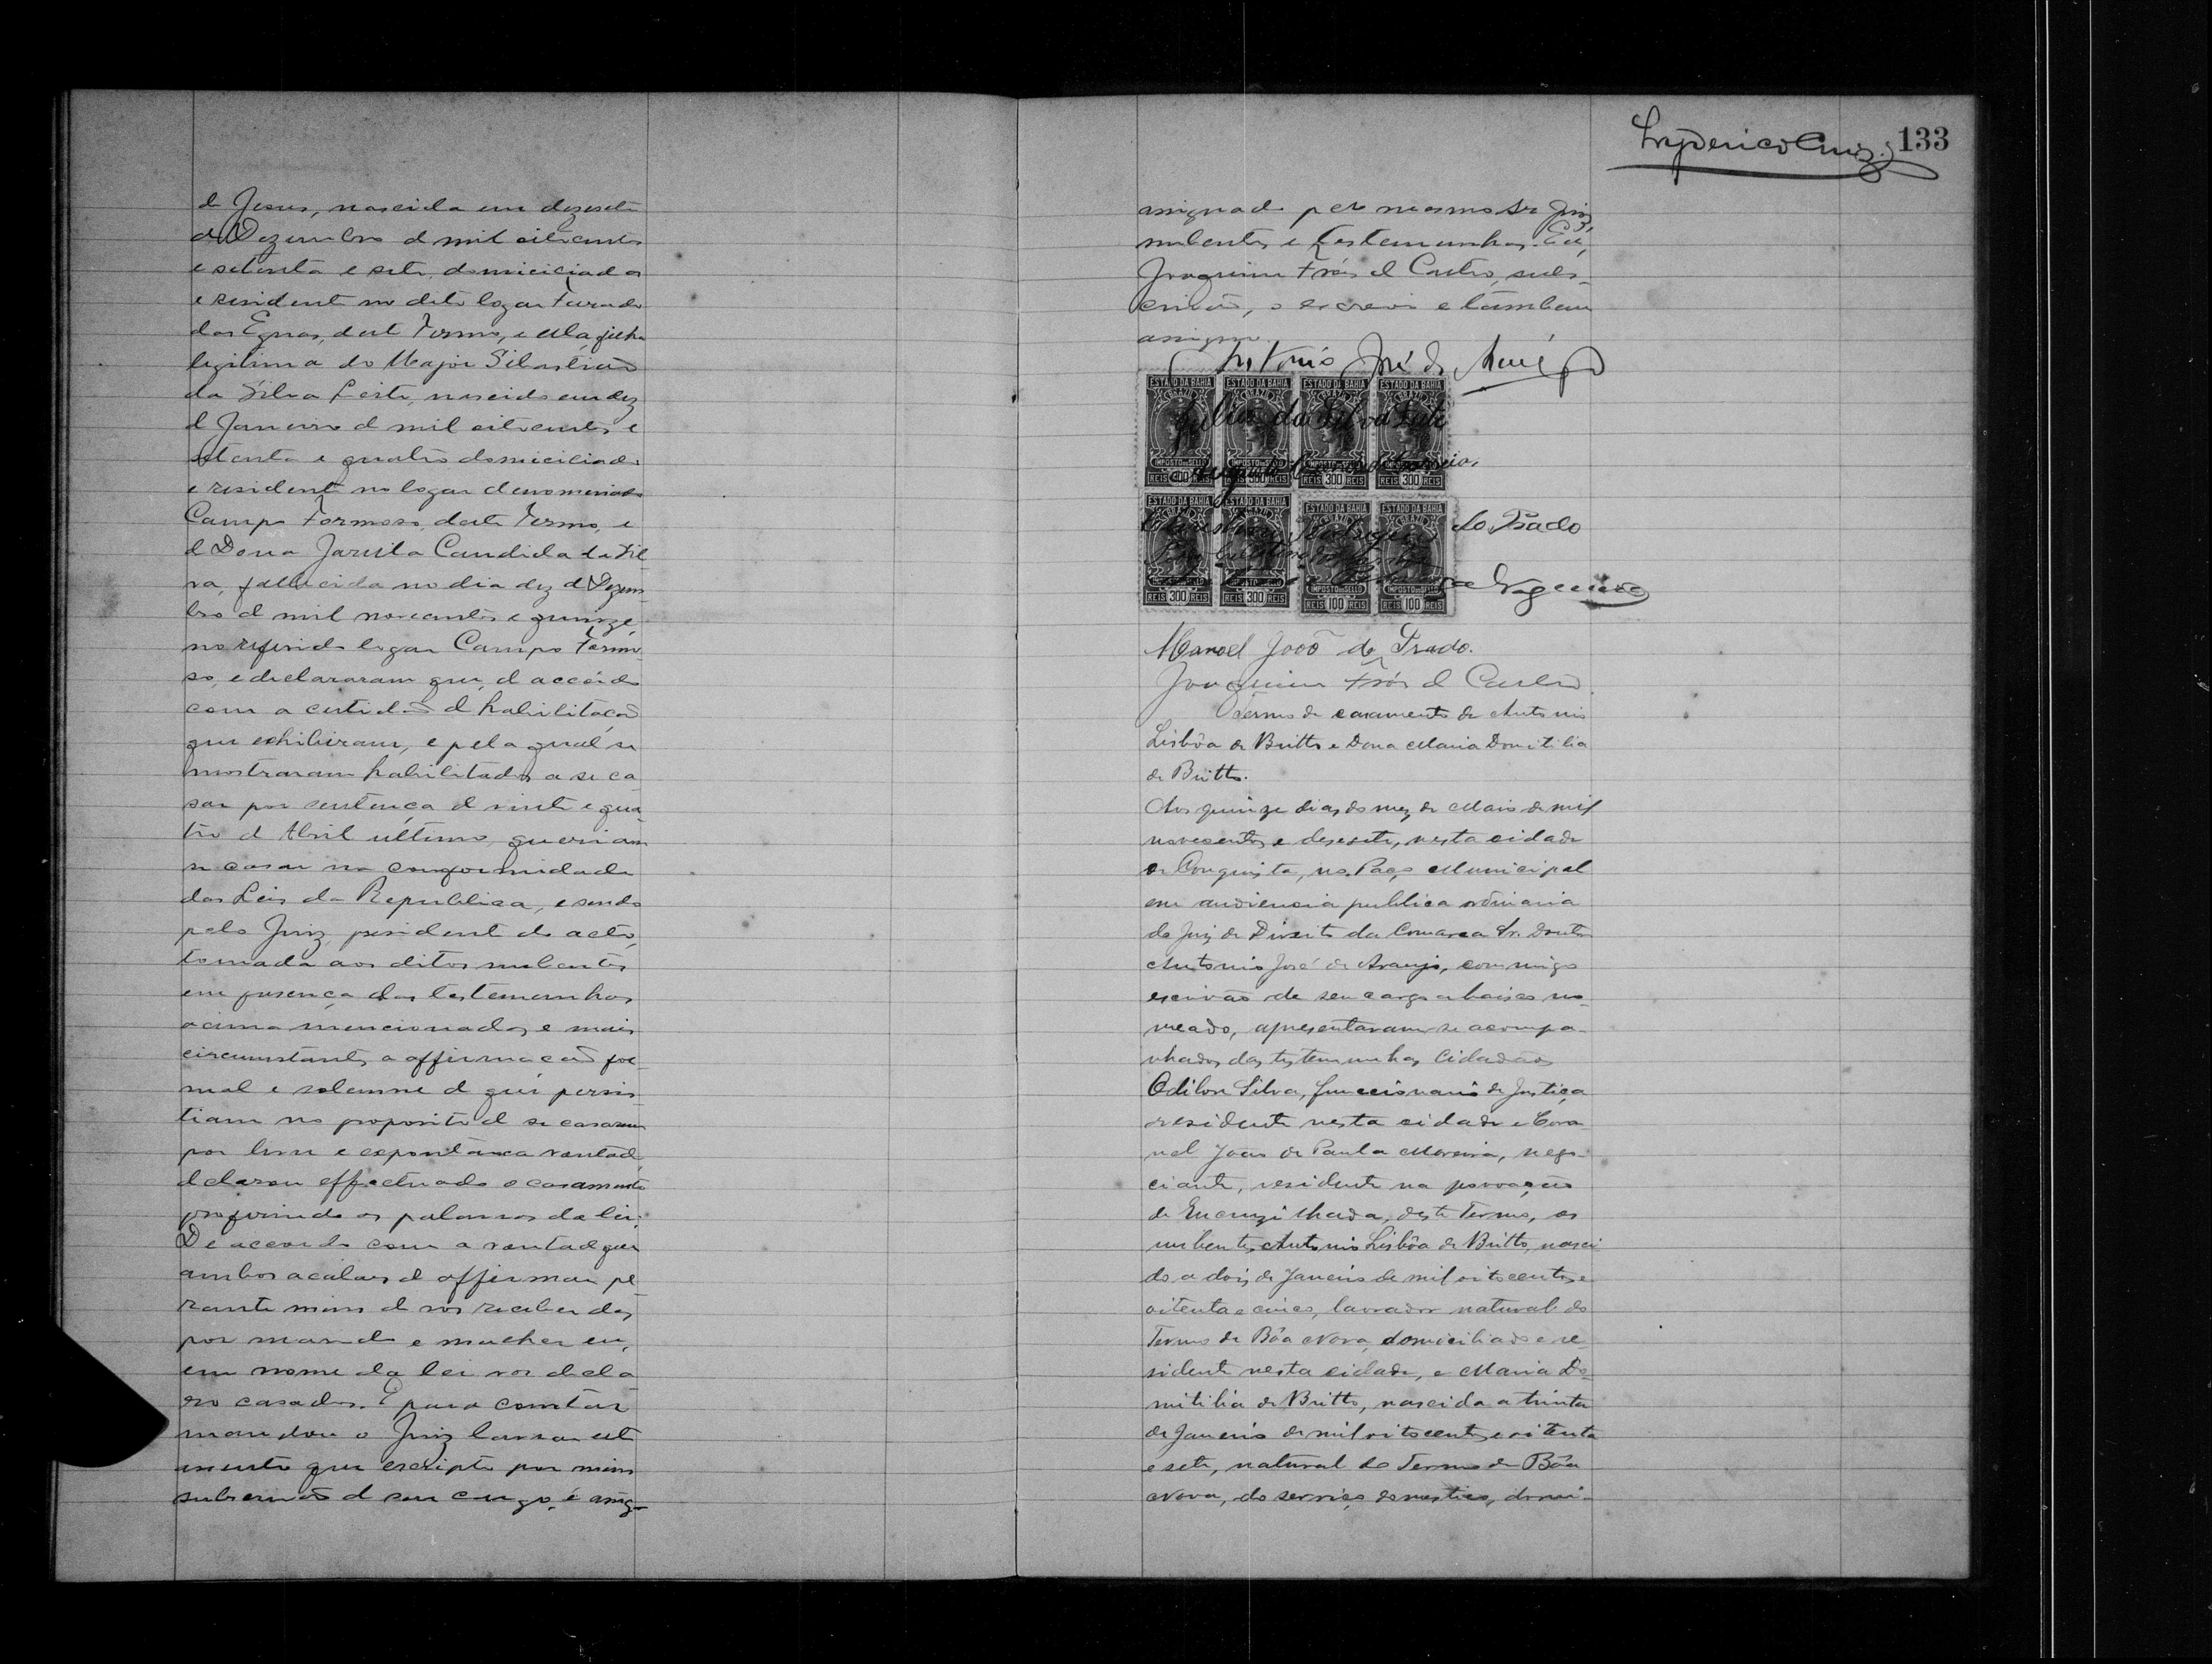 de Jesus, nascida em dezesete
de Dezembro de mil oitocentos
e setenta e sete, domiciciada
e resident no dito logar Furado
das Egoas, dest Termo, e ella filha
legitima do Major Sibastião
da Silva Leite, nascido em dez
d Janeiro d mil oitocentos e
setenta e quatro domiciciado
e resident no logar denominado
Campo Formoso, deste Termo, e
d Dona Jacula Candida da Sil
va, fallecida no dia dez d Dezem
bro d mil novecentos e quinze
no referido logar Campo Formo-
so, e declararam que, d accôrdo
com a certidão d habilitação
que exhibiram, e pela qual se
mostraram habilitados a se ca
sar por sentença d vinte e qua
tro d Abril ultimo, queriam
se casar na conformidade
das Leis da Republica, e sendo
pelo Juiz, president do acto,
tomada aos ditos nubentes
em presença das testemunhas
acima mencionadas e mais
circumstantes a affirmação for
mal e solemne d que persis
tiam no proposito d se casarem
por livre e expontanea vontade
declarou effectuado o casamento
proferindo as palavras da lei:
De accordo com a vontade que
ambos acabaes d affirmar pe
rante mim d vos receberdes
por marido e mulher eu,
em nome da lei vos decla
ro casados. E para constar
mandou o Juiz lavrar est
assento que escripto por mim
subescrivão d seu cargo, é assig-
LydericoCruz. 133
assignado pelo mesmo Sr Juiz,
nubentes e testemunhas. Eu,
Joaquim Fróes d Castro, subs
crivão, o escrevi e tambem
assigno.
Antonio José de Araújo
ESTADO DA BAHIA ESTADO DA BAHIA ESTADO DA BAHIA ESTADO DA BAHIA
BRAZIL
da Silva Leite
IMPOSTO DO SELLO
REIS 300 REIS REIS 300 REIS REIS 300 REIS REIS 300 REIS
ESTADO DA BAHIA ESTADO DA BAHIA ESTADO DA BAHIA ESTADO DA BAHIA
BRAZIL
Rodrigues do Prado
IMPOSTO DO SELLO
REIS 300 REIS REIS 300 REIS REIS 100 REIS REIS 100 REIS
Manoel João do Prado.
Joaquim Fróes d Castro.
Termo de casamento de Antonio
Lisbôa de Britto e Dona Maria Domitilia
de Britto.
Aos quinze dias do mez de Maio de mil
novecentos e desesete, nesta cidade
de Conquista, no Paço Municipal
em audiencia publica ordinaria
do Juiz de Direito da Comarca Sr. Doutor
Antonio José de Araujo, commigo
escrivão de seu cargo abaixo no-
meado, apresentaram-se acompa-
nhados das testemunhas Cidadãos
Odilon Silva, funccionario de Justiça
residente nesta cidade e Coro
nel João de Paula Moreira, nego-
ciante, residente na povoação
de Encruzilhada, deste Termo, os
nubentes Antonio Lisbôa de Britto, nasci
do a dois de Janeiro de mil oitocentos e
oitenta e cinco, lavrador natural do
Termo de Bôa Nova, domiciliado e re-
sidente nesta cidade, e Maria Do-
mitilia de Britto, nascida a trinta
de Janeiro de mil oitocentos e oitenta
e sete, natural do Termo de Bôa
Nova, do serviço domestico, domi-